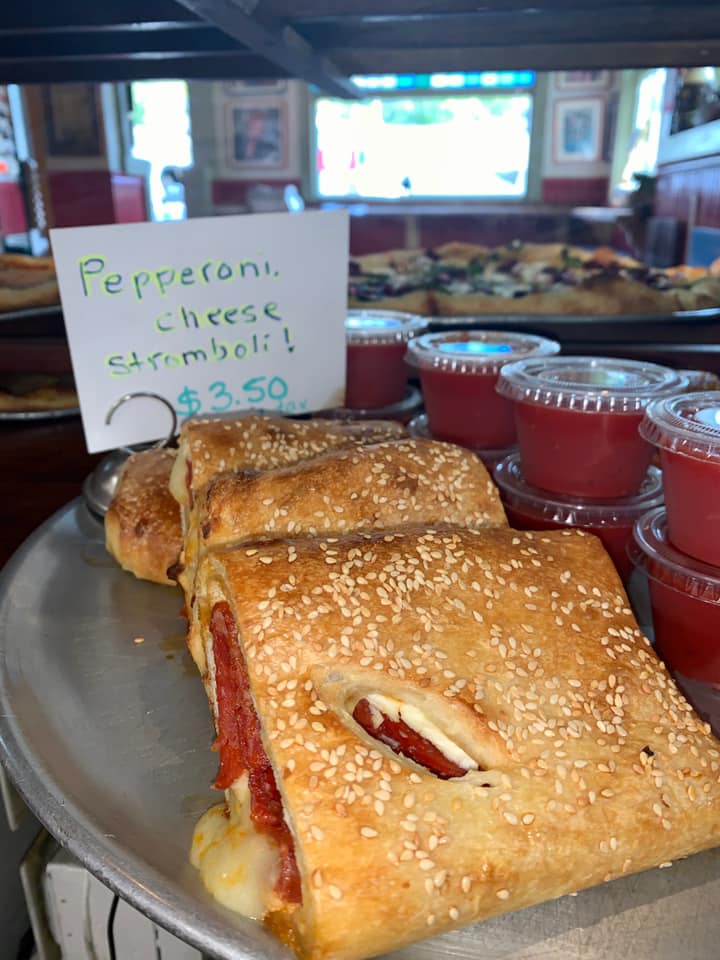 Pepperoni,
cheese
stromboli!
$3.50
tax